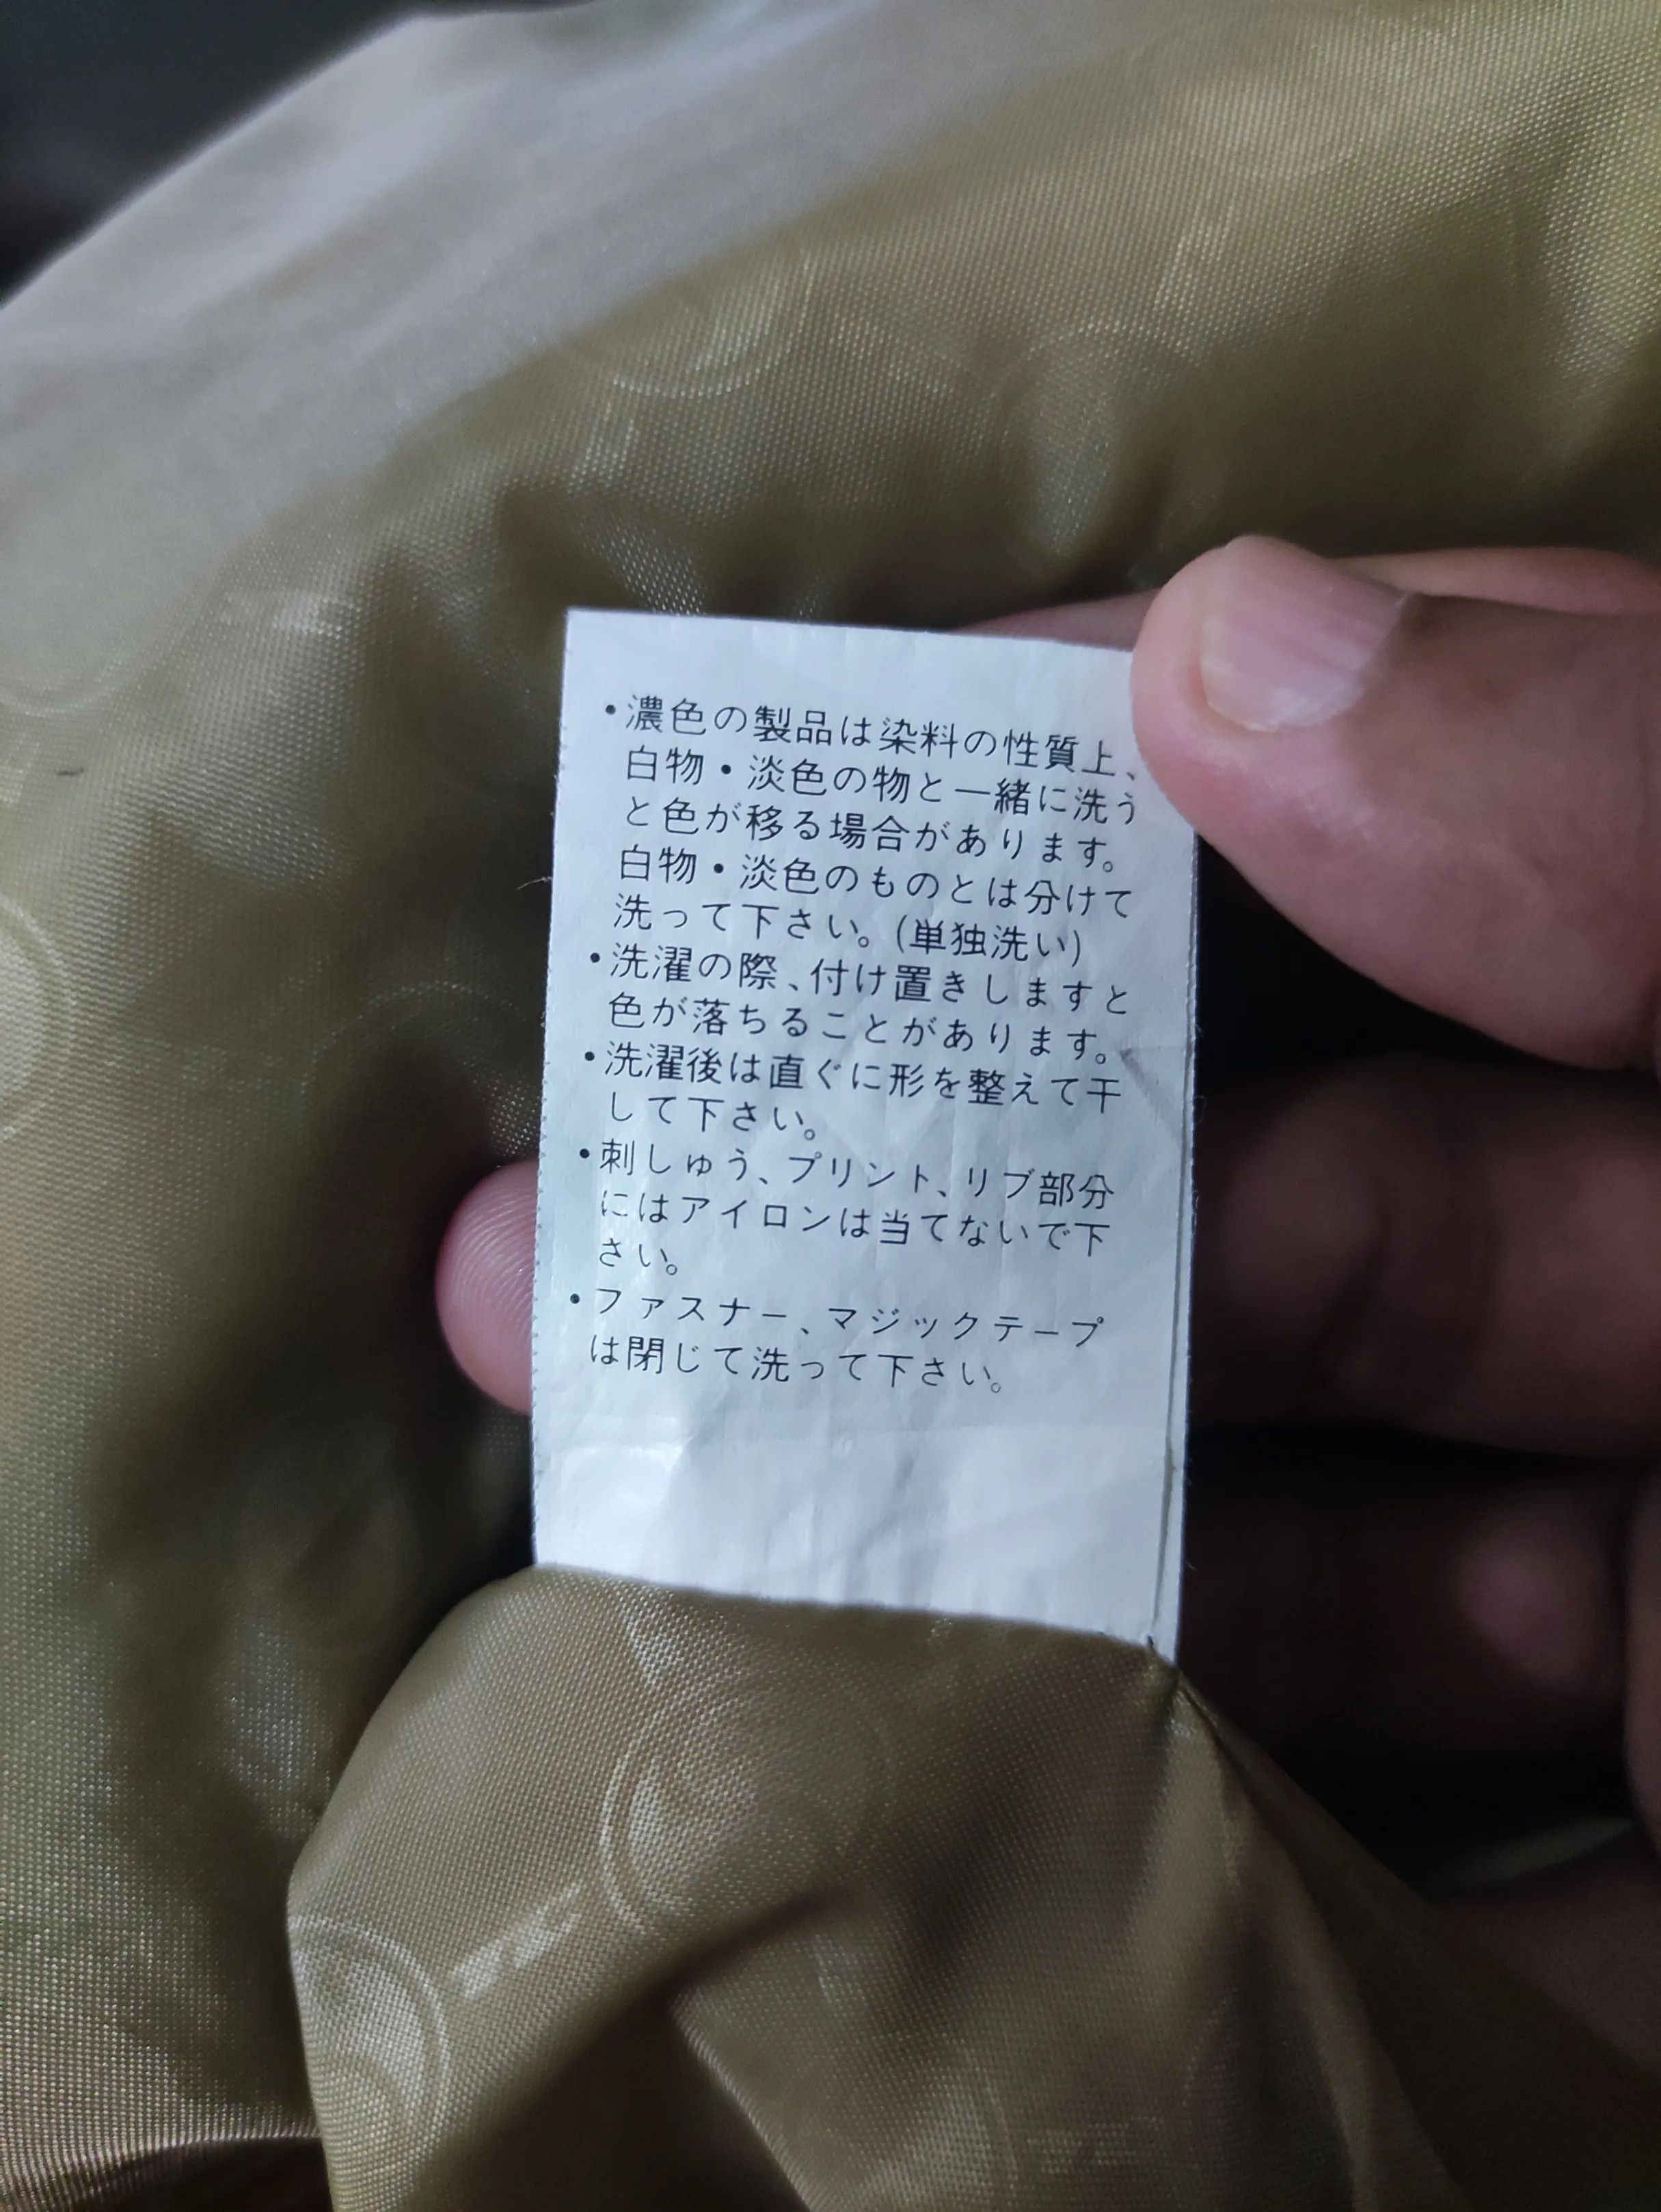 ・濃色の製品は染料の性質上、
白物・淡色の物と一緒に洗う
と色が移る場合があります。
白物・淡色のものとは分けて
洗って下さい。(単独洗い)
・洗濯の際、付け置きしますと
色が落ちることがあります。
・洗濯後は直ぐに形を整えて干
して下さい。
・刺しゅう、プリント、リブ部分
にはアイロンは当てないで下
さい。
・ファスナー、マジックテープ
は閉じて洗って下さい。